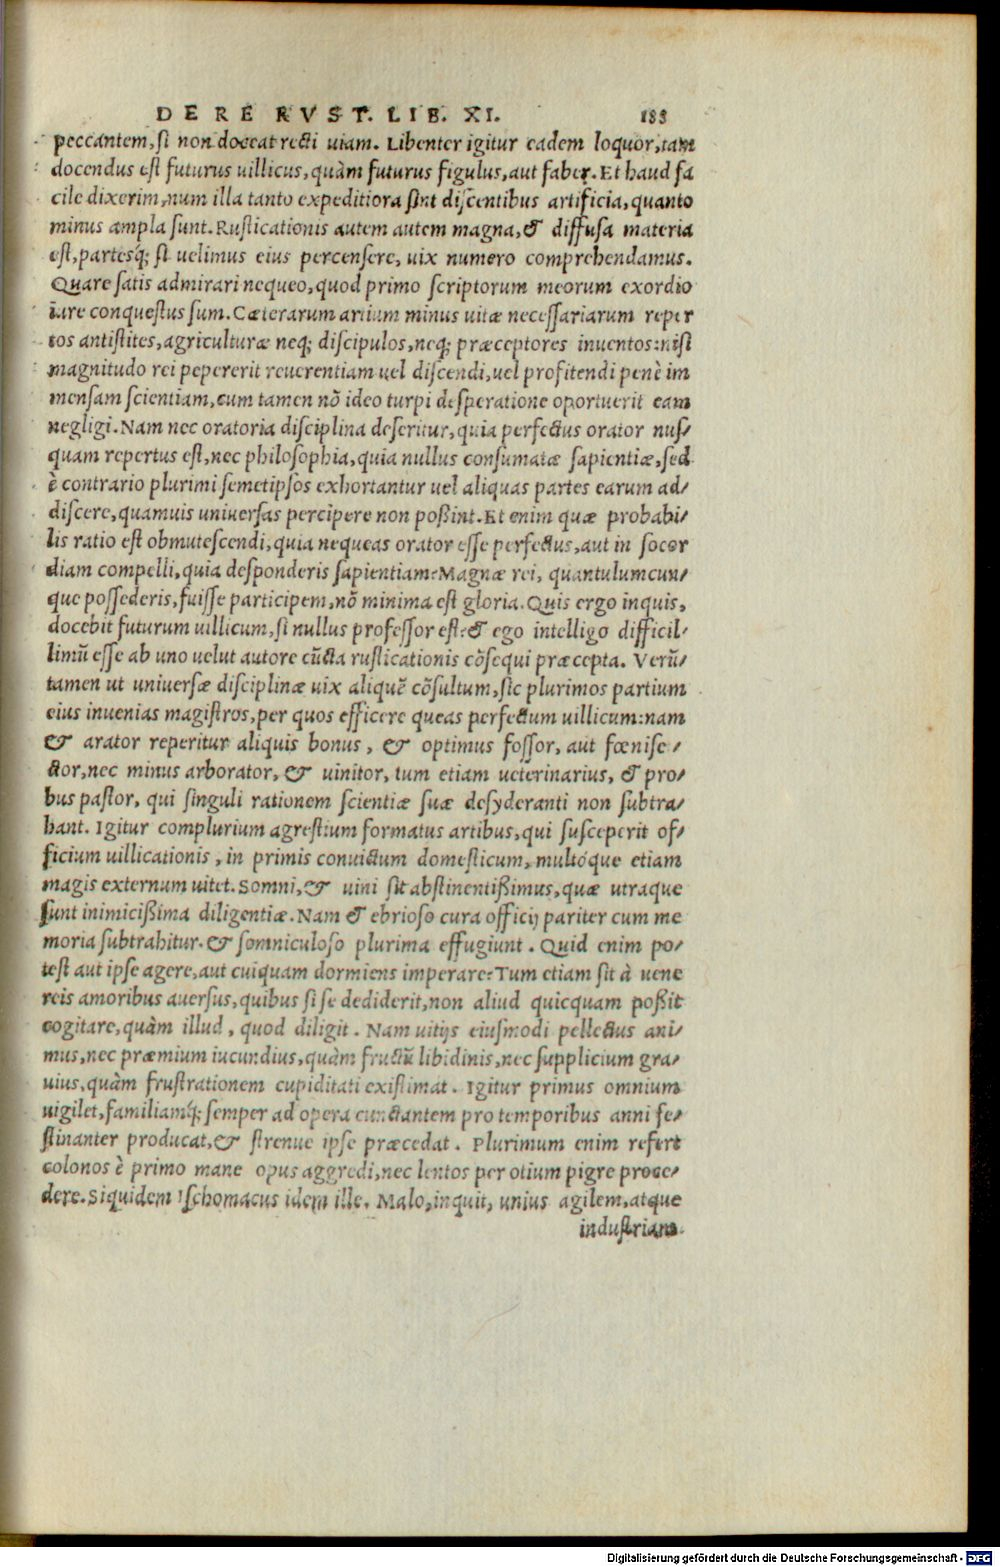 DE RE RVST. LIB. XI. 183
peccantem, si non doceat recti uiam. Libenter igitur eadem loquor, tam
docendus est futurus uillicus, quàm futurus figulus, aut faber. Et haud fa
cile dixerim, num illa tanto expeditiora sint discentibus artificia, quanto
minus ampla sunt. Rusticationis autem autem magna, & diffusa materia
est, partesq́; si uelimus eius percensere, uix numero comprehendamus.
Quare satis admirari nequeo, quod primo scriptorum meorum exordio
iure conquestus sum. Cæterarum artium minus uitæ necessariarum reper
tos antistites, agriculturæ neq; discipulos, neq; præceptores inuentos: nisi
magnitudo rei pepererit reuerentiam uel discendi, uel profitendi penè im
mensam scientiam, cum tamen nõ ideo turpi desperatione oportuerit eam
negligi. Nam nec oratoria disciplina deseritur, quia perfectus orator nus/
quam repertus est, nec philosophia, quia nullus consumatæ sapientiæ, sed
è contrario plurimi semetipsos exhortantur uel aliquas partes earum ad/
discere, quamuis uniuersas percipere non poßint. Et enim quæ probabi/
lis ratio est obmutescendi, quia nequeas orator esse perfectus, aut in socor
diam compelli, quia desponderis sapientiam? Magnæ rei, quantulumcun/
que possederis, fuisse participem, nõ minima est gloria. Quis ergo inquis,
docebit futurum uillicum, si nullus professor est? & ego intelligo difficil/
limũ esse ab uno uelut autore cũcta rusticationis cõsequi præcepta. Verũ/
tamen ut uniuersæ disciplinæ uix aliquẽ cõsultum, sic plurimos partium
eius inuenias magistros, per quos efficere queas perfectum uillicum: nam
& arator reperitur aliquis bonus, & optimus fossor, aut fœnise/
ctor, nec minus arborator, & uinitor, tum etiam ueterinarius, & pro/
bus pastor, qui singuli rationem scientiæ suæ desyderanti non subtra/
hant. Igitur complurium agrestium formatus artibus, qui susceperit of/
ficium uillicationis, in primis conuictum domesticum, multóque etiam
magis externum uitet. Somni, & uini sit abstinentißimus, quæ utraque
sunt inimicißima diligentiæ. Nam & ebrioso cura officij pariter cum me
moria subtrahitur. & somniculoso plurima effugiunt. Quid enim po/
test aut ipse agere, aut cuiquam dormiens imperare? Tum etiam sit à uene
reis amoribus auersus, quibus si se dediderit, non aliud quicquam poßit
cogitare, quàm illud, quod diligit. Nam uitijs eiusmodi pellectus ani/
mus, nec præmium iucundius, quàm fructũ libidinis, nec supplicium gra/
uius, quàm frustrationem cupiditati existimat. Igitur primus omnium
uigilet, familiamq́; semper ad opera cunctantem pro temporibus anni fe/
stinanter producat, & strenue ipse præcedat. Plurimum enim refert
colonos è primo mane opus aggredi, nec lentos per otium pigre proce/
dere. Siquidem Ischomacus idem ille. Malo, inquit, unius agilem, atque
industriam
Digitalisierung gefördert durch die Deutsche Forschungsgemeinschaft - DFG